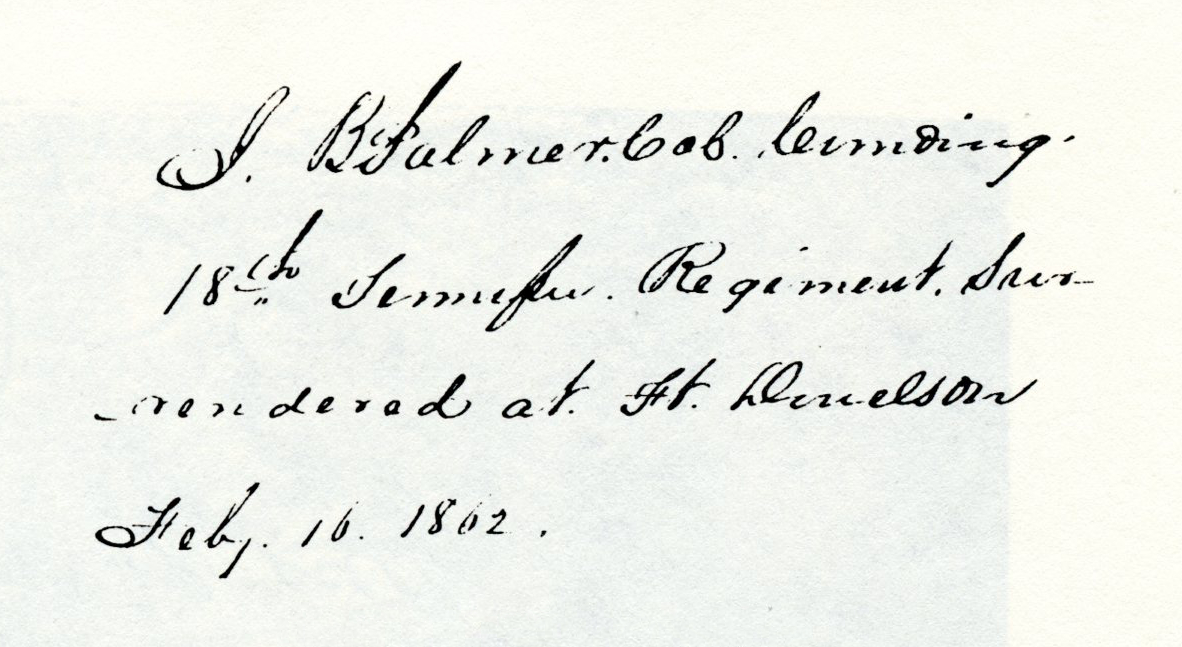 J. B Palmer. Col. Comding.
18th Tennessee. Regiment. Sur-
-rendered at. Ft. Donelson
Feby. 16. 1862.